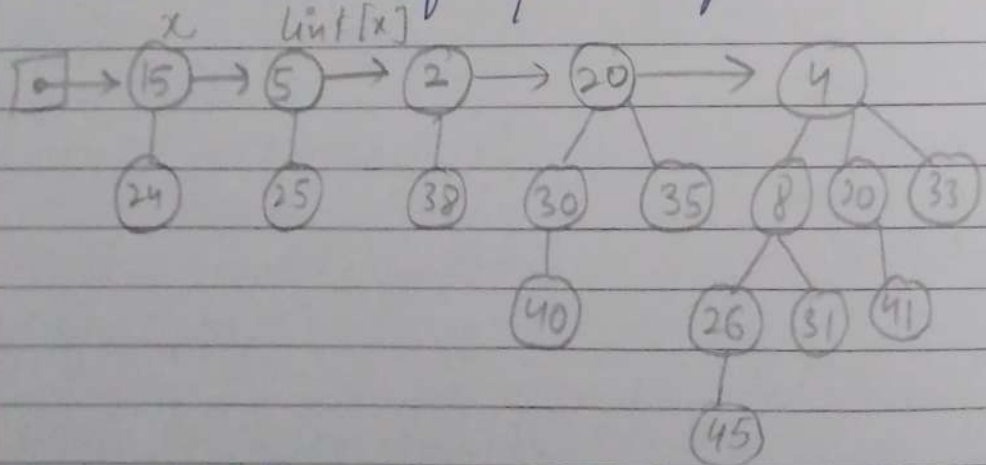 x link[x]
15 5 2 20 4
24 25 38 30 35 8 20 33
40 26 31 41
45